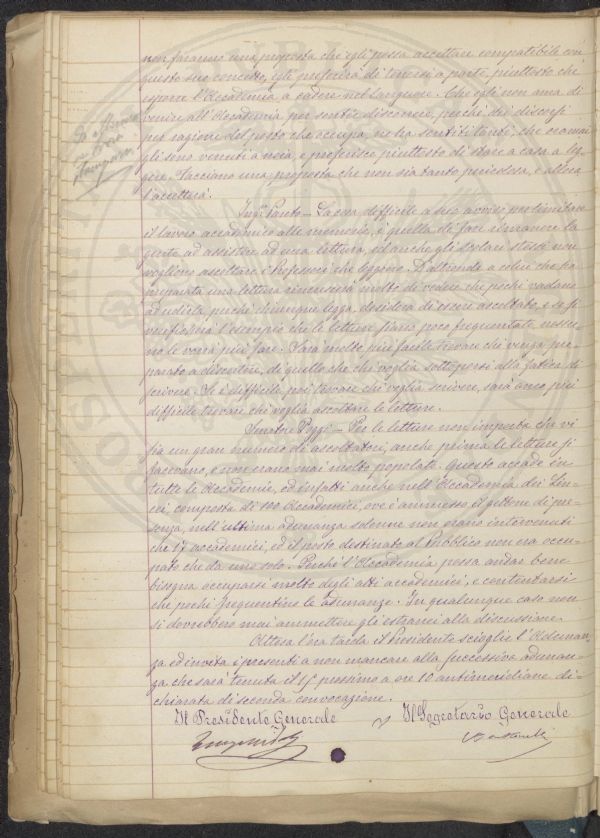 non faranno una proposta che egli possa accettare compatibile con
questo suo concetto, egli preferirà di tenersi a parte, piuttosto che
esporre l'Accademia a cadere nel languore. Che egli non ama di
venire all'Accademia per sentir discorrere, perché dei discorsi
per ragione del posto che occupa, ne ha sentiti tanti, che oramai
gli sono venuti a noia, e preferisce piuttosto di stare a casa a leg-
gere. Facciano una proposta che non sia tanto pericolosa, e allora
l'accetterà.
Ing.e Ponto - La cosa difficile a suo avviso per limitare
il lavoro accademico alle memorie, è quella di fare rimanere la
gente ad assistere ad una lettura, ed anche gli scolari stessi non
vogliono ascoltare i Professori che leggono. D'altronde a colui che ha
preparata una lettura rincrescerà molto di vedere che pochi vadano
ad udirla, perché chiunque legga, desidera di essere ascoltato, e se si
verificherà l'esempio che le letture siano poco frequentate nessu-
no le vorrà più fare. Sarà molto più facile trovare chi venga pre-
parato a discutere, di quello che chi voglia sottoporsi alla fatica di
scrivere. Se è difficile poi trovare chi voglia scrivere, sarà anco più
difficile trovare chi voglia ascoltare le letture.
Senatore Poggi - Per le letture non importa che vi
sia un gran numero di ascoltatori, anche prima le letture si
facevano, e non erano mai molto popolate. Questo accade in
tutte le Accademie, ed infatti anche nell'Accademia dei Lin-
cei, composta di 100 Accademici, ove è ammesso il gettone di pre-
senza, nell'ultima adunanza solenne non erano intervenuti
che 17 accademici, ed il posto destinato al Pubblico non era occu-
pato che da uno solo. Perché l'Accademia possa andar bene
bisogna occuparsi molto degli atti accademici, e contentarsi
che pochi frequentino le adunanze. In qualunque caso non
si dovrebbero mai ammettere gli estranei alla discussione.
Attesa l'ora tarda il Presidente scioglie l'Adunan-
za ed invita i presenti a non mancare alla successiva adunan-
za che sarà tenuta il 15 prossimo a ore 10 antimeridiane di-
chiarata di seconda convocazione.
Il Presidente Generale
Il Segretario Generale